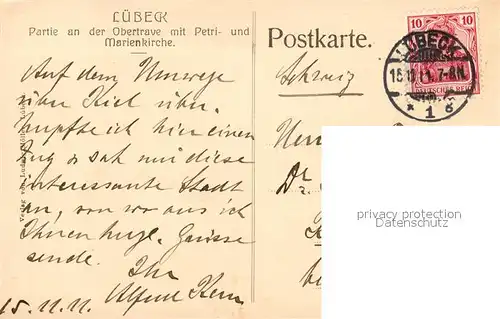 LÜBECK
Partie an der Obertrave mit Petri- und
Marienkirche.
Auf dem Umwege
über Kiel über-
hupfte ich hier einen
Zug & sah mir diese
interessante Stadt
an, von wo aus ich
Ihnen herzl. Grüsse
sende.
Ihr
Alfred Kern
15.11.11.
Postkarte.
Schweiz
Herrn
Dr.
10 10
DEUTSCHES REICH
LÜBECK
15.11.11. 7-8N.
* 1 g
privacy protection
Datenschutz